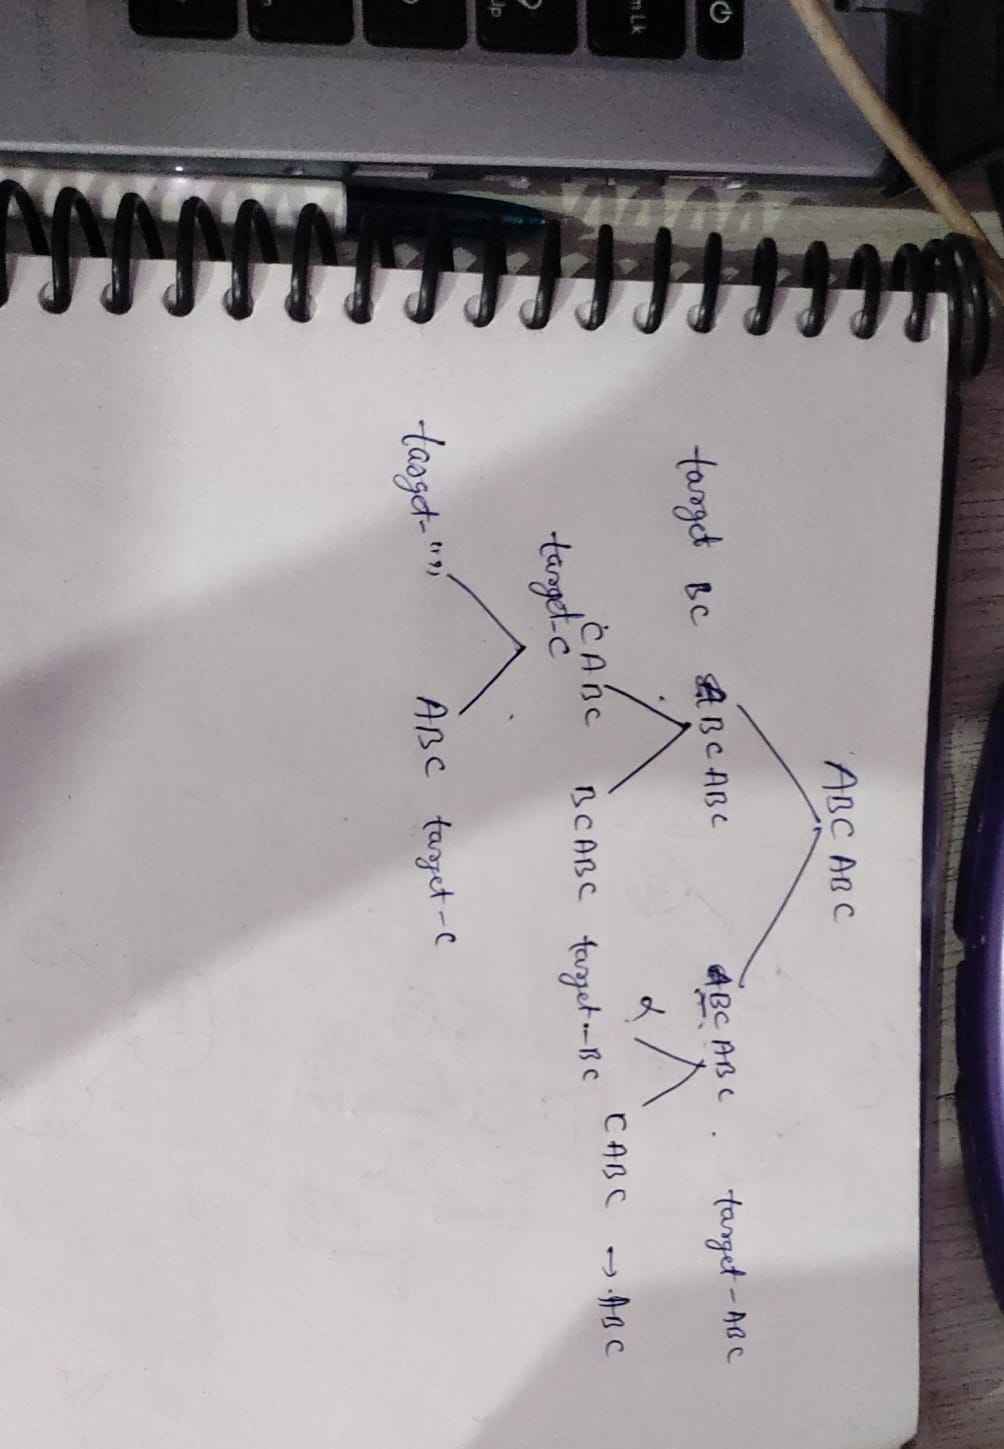 ABC ABC
target BC ABCABC ABC ABC . target-ABC
CABC → ABC
CABC BCABC target-BC
target-C
target-"" ABC target-C